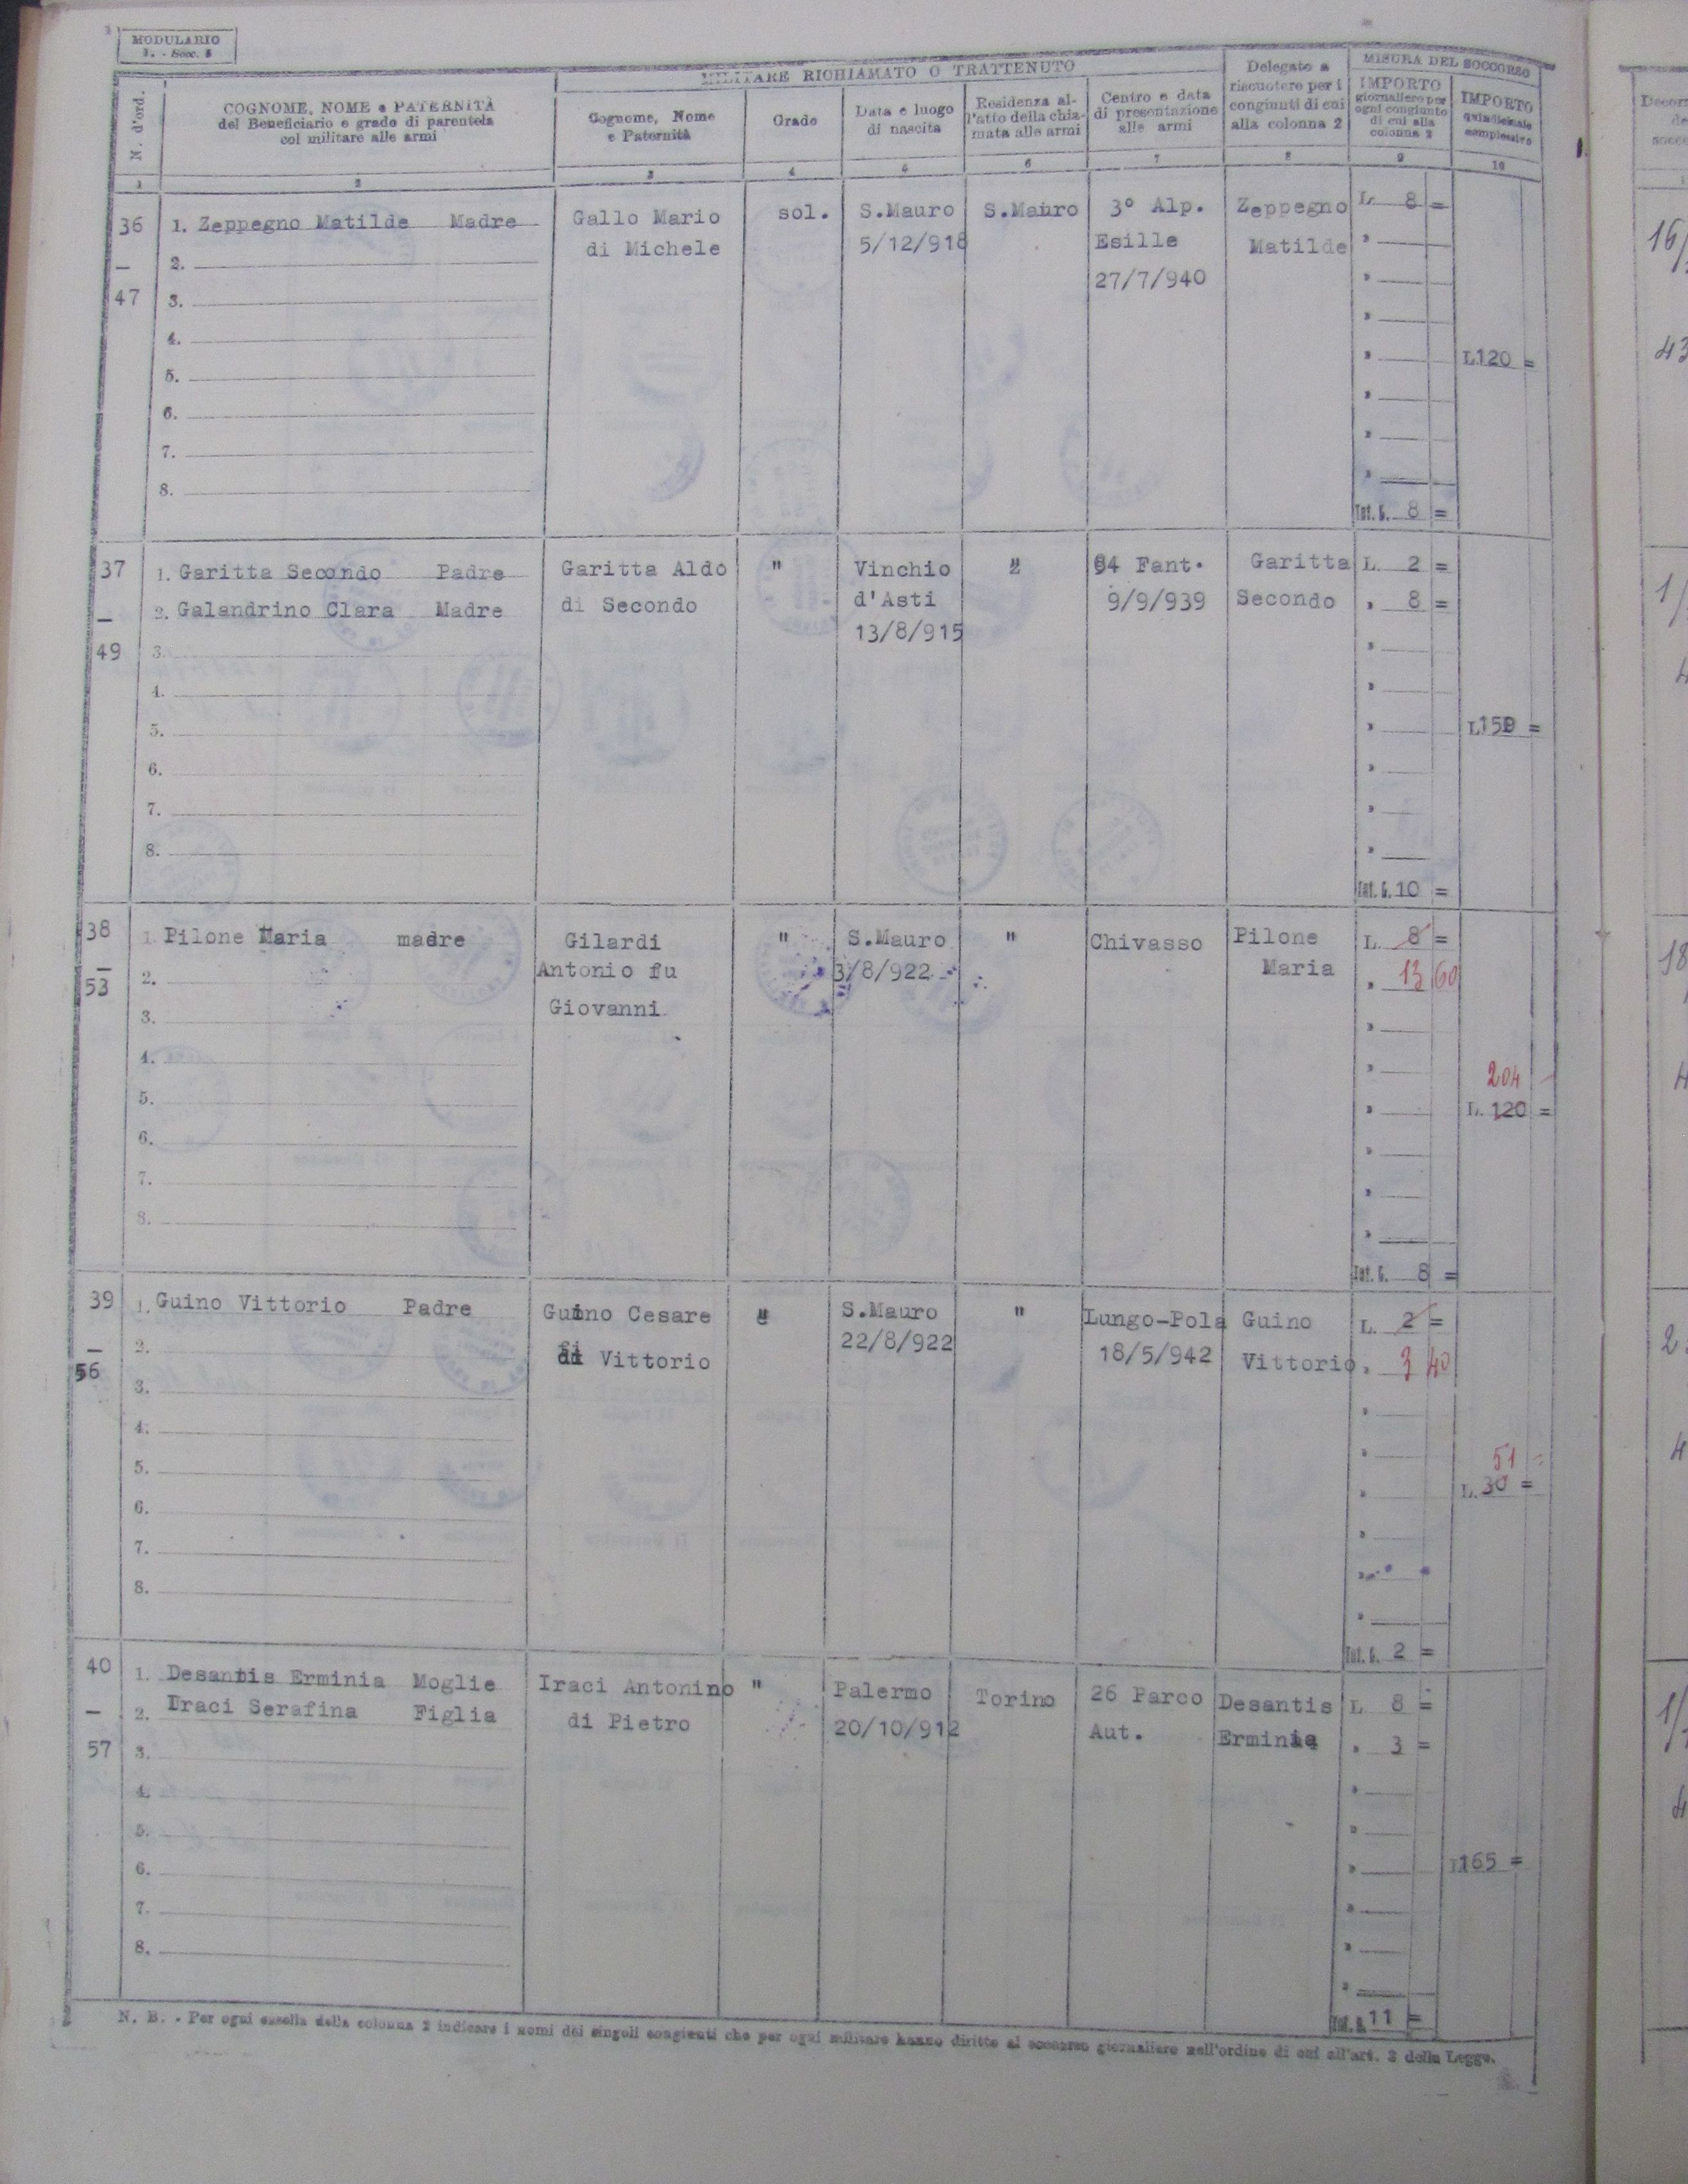 MODULARIO
1. - Socc. 5
MILITARE RICHIAMATO O TRATTENUTO
MISURA DEL SOCCORSO
N. d'ord.
COGNOME, NOME e PATERNITÀ
del Beneficiario e grado di parentela
col militare alle armi
Cognome, Nome
e Paternità
Grado
Data e luogo
di nascita
Residenza al-
l'atto della chia-
mata alle armi
Centro e data
di presentazione
alle armi
Delegato a
riscuotere per i
congiunti di cui
alla colonna 2
IMPORTO
giornaliero per
ogni congiunto
di cui alla
colonna 2
IMPORTO
quindicinale
complessivo
1 2 3 4 5 6 7 8 9 10
36 1. Zeppegno Matilde Madre Gallo Mario sol. S.Mauro S.Mauro 3° Alp. Zeppegno L. 8 =
— 2. di Michele 5/12/918 Esille Matilde "
47 3. 27/7/940 "
4. "
5. " L.120 =
6. "
7. "
8. "
Tot. G. 8 =
37 1. Garitta Secondo Padre Garitta Aldo " Vinchio " 84 Fant. Garitta L. 2 =
— 2. Galandrino Clara Madre di Secondo d'Asti 9/9/939 Secondo " 8 =
49 3. 13/8/915 "
4. "
5. " L.150 =
6. "
7. "
8. "
Tot. G. 10 =
38 1. Pilone Maria madre Gilardi " S.Mauro " Chivasso Pilone L. 8 =
— 2. Antonio fu 3/8/922 Maria " 13 60
53 3. Giovanni "
4. " 204
5. " L. 120 =
6. "
7. "
8. "
Tot. G. 8 =
39 1. Guino Vittorio Padre Guino Cesare " S.Mauro " Lungo-Pola Guino L. 2 =
— 2. di Vittorio 22/8/922 18/5/942 Vittorio " 3 40
56 3. "
4. " 51 =
5. " L. 30 =
6. "
7. "
8. "
Tot. G. 2 =
40 1. Desantis Erminia Moglie Iraci Antonino " Palermo Torino 26 Parco Desantis L 8 =
— 2. Iraci Serafina Figlia di Pietro 20/10/912 Aut. Erminia " 3 =
57 3. "
4. "
5. " L165 =
6. "
7. "
8. "
Tot. G. 11 =
N. B. - Per ogni casella della colonna 2 indicare i nomi dei singoli congiunti che per ogni militare hanno diritto al soccorso giornaliero nell'ordine di cui all'art. 2 della Legge.